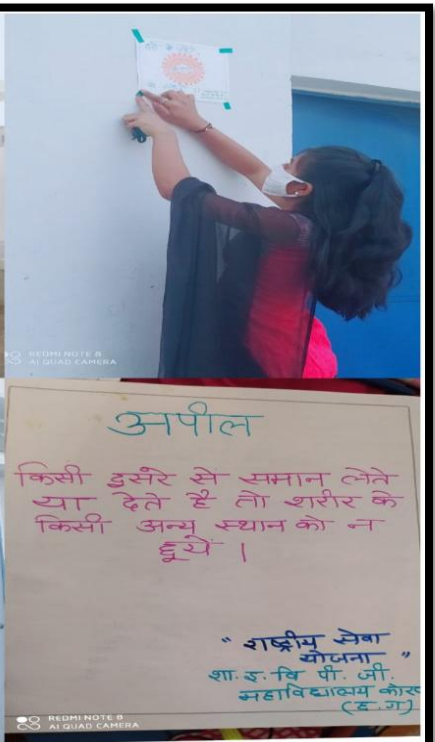 REDMI NOTE 8
AI QUAD CAMERA
अपील
किसी दुसरे से समान लेते
या देते है तो शरीर के
किसी अन्य स्थान को न
छूयें ।
" राष्ट्रीय सेवा
योजना "
शा. इ. वि पी. जी.
महाविद्यालय कोरबा
(छ. ग)
REDMI NOTE 8
AI QUAD CAMERA